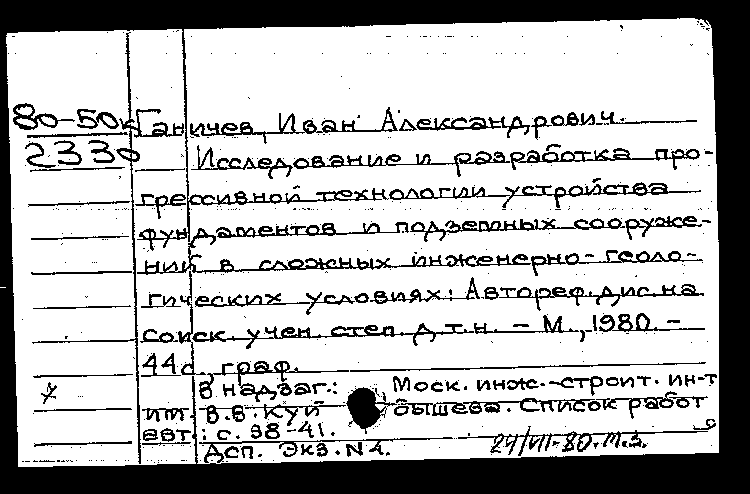 80-50к Ганичев, Иван Александрович.
2330 Исследование и разработка про-
грессивной технологии устройства
фундаментов и подземных сооруже-
ний в сложных инженерно-геоло-
гических условиях: Автореф. дис. на
соиск. учен. степ. д.т.н. - М., 1980. -
44с., граф.
В надзаг.: Моск. инж.-строит. ин-т
им. В.В. Куйбышева. Список работ
авт.: с. 38-41.
Дсп. Экз. N4. 24/VII-80.